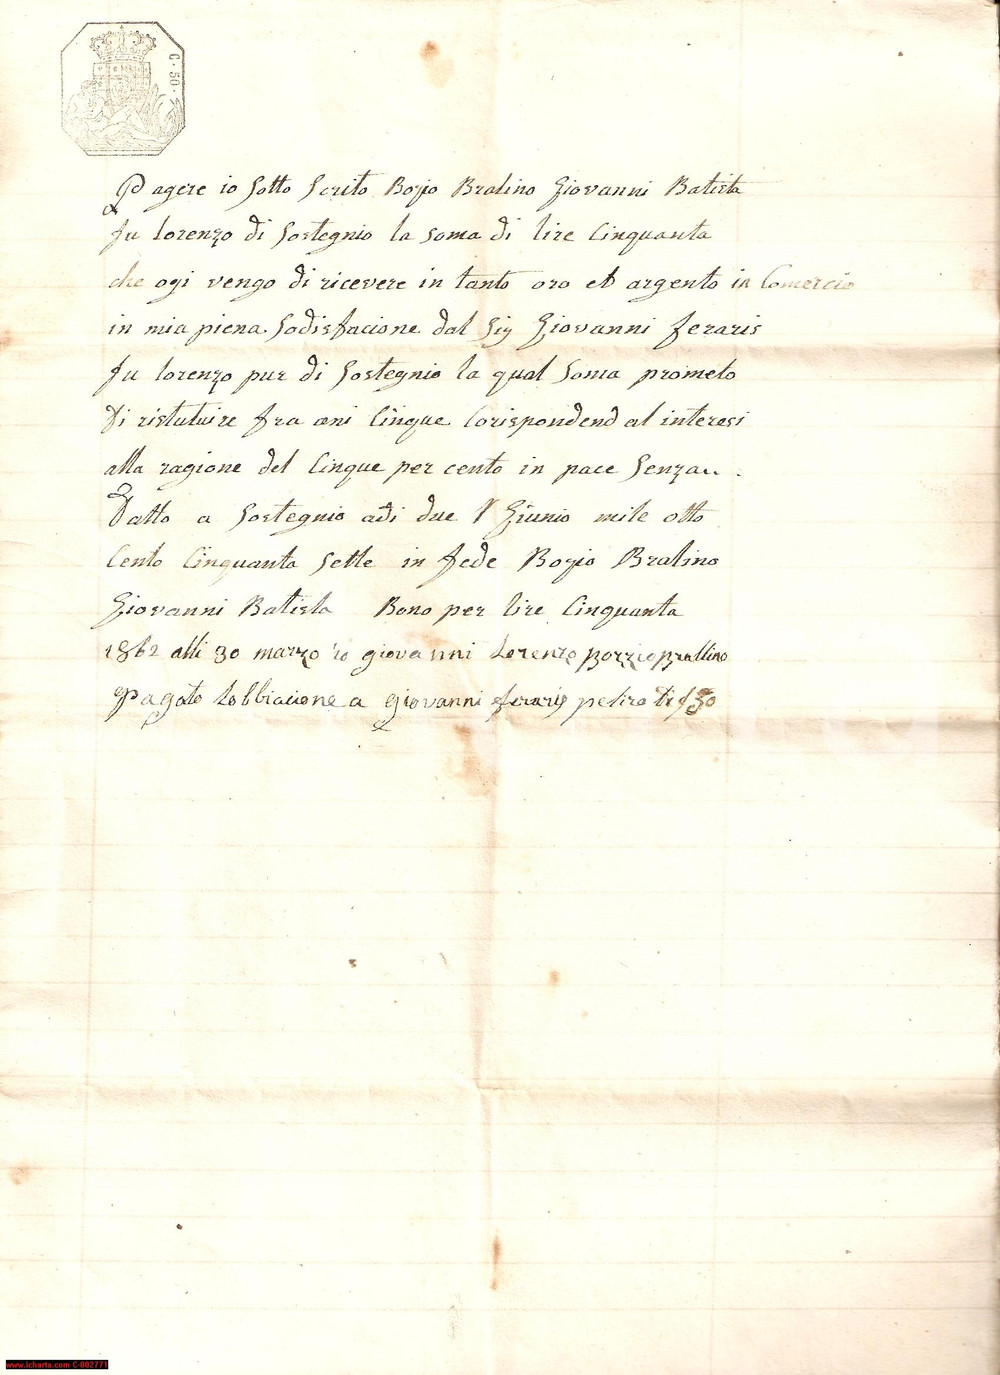 C. 50.
Pagere io Sotto Scrito Bozio Bralino Giovanni Batista
fu Lorenzo di Sostegnio la Soma di lire Cinquanta
che ogi vengo di ricevere in tanto oro et argento in Comercio
in mia piena Sodisfacione dal Sig Giovanni feraris
fu lorenzo pur di Sostegnio la qual Soma prometo
Di ristutuire fra ani Cinque Corispondend al interesi
alla ragione del Cinque per cento in pace Senza
Datto a Sostegnio adi due Giunio mile otto
Cento Cinquanta Sette in fede Bozio Bralino
Giovanni Batista Bono per lire Cinquanta
1862 alli 30 marzo io giovanni Lorenzo Bozzio Brallino
Pagato Lobbiacione a giovanni feraris petiro
www.icharta.com C-002771